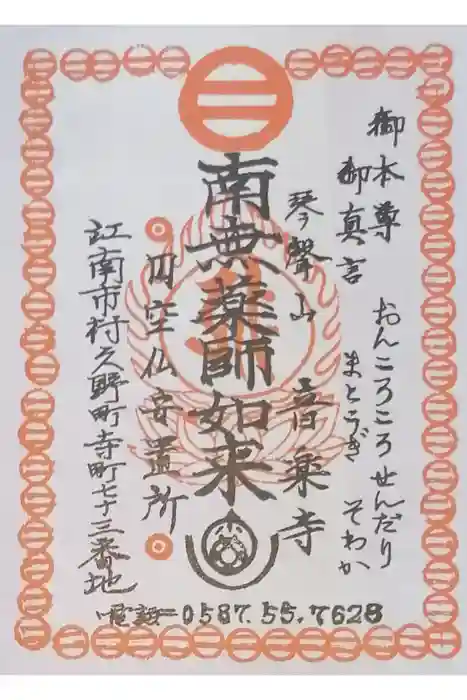 御本尊
御真言
おんころころ せんだり
まとうぎ そわか
琴聲山 音楽寺
南無薬師如来
薬
円空仏安置所
江南市村久野町寺町七十三番地
電話=0587.55.7628